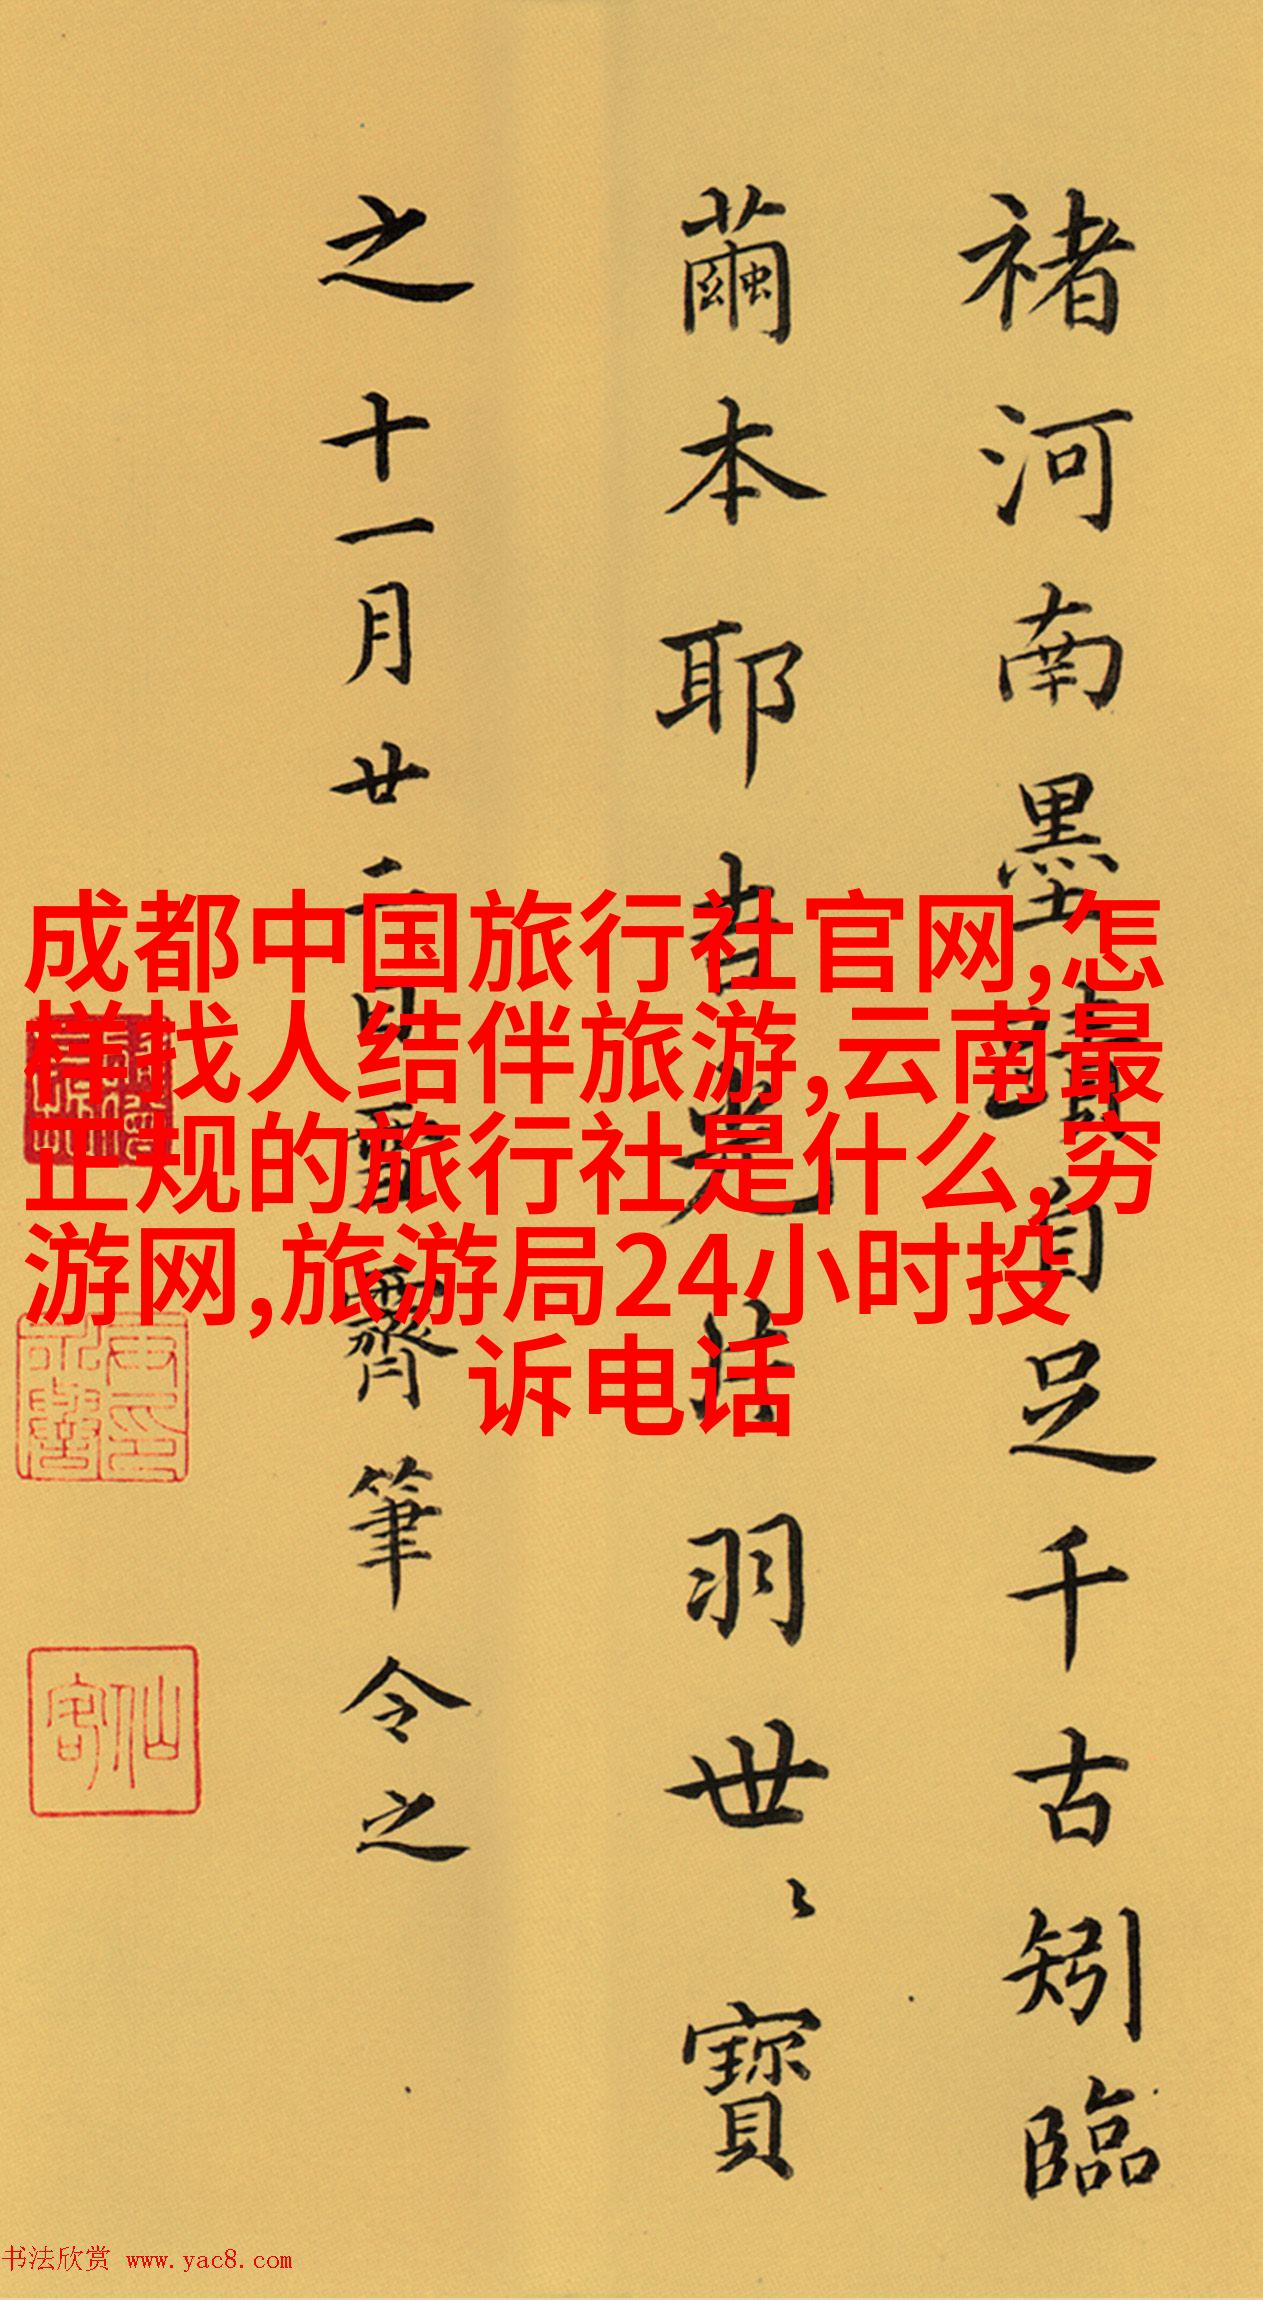 褚河南墨蹟自足千古矧臨
繭本耶昔光法羽世〻寶
之十一月廿二日雪霽筆令之
成都中国旅行社官网,怎
样找人结伴旅游,云南最
正规的旅行社是什么,穷
游网,旅游局24小时投
诉电话
仙客
书法欣赏 www.yac8.com